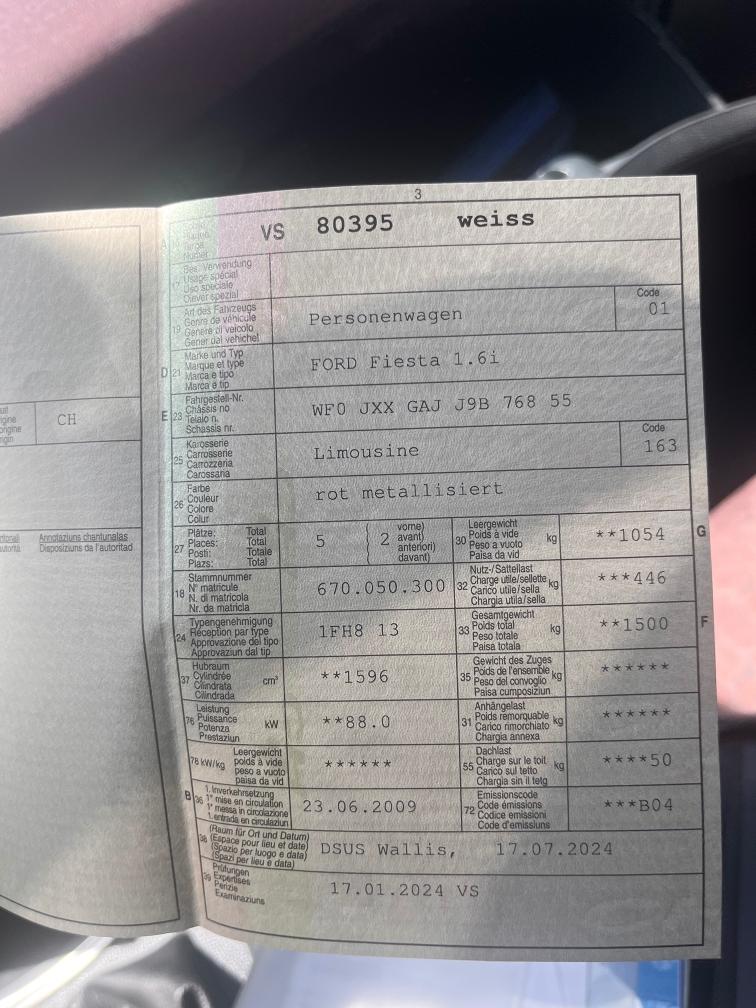 3
VS 80395 weiss
Bes. Verwendung
Usage spécial
Uso speciale
Diever spezial
Art des Fahrzeugs
Genre de véhicule
Genere di veicolo
Gener dal vehichel
19
Personenwagen
Code
01
D 21
Marke und Typ
Marque et type
Marca e tipo
Marca e tip
FORD Fiesta 1.6i
E 23
Fahrgestell-Nr.
Châssis no
Telaio n.
Schassis nr.
WF0 JXX GAJ J9B 768 55
CH
25
Karosserie
Carrosserie
Carrozzeria
Carossaria
Limousine
Code
163
26
Farbe
Couleur
Colore
Colur
rot metallisiert
Annotaziuns chantunalas
Disposiziuns da l'autoritad
27
Plätze: Total
Places: Total
Posti: Totale
Plazs: Total
5
2
vorne)
avant)
anteriori)
davant)
30
Leergewicht
Poids à vide
Peso a vuoto
Paisa da vid
kg
**1054
G
18
Stammnummer
N° matricule
N. di matricola
Nr. da matricla
670.050.300
32
Nutz-/Sattellast
Charge utile/sellette
Carico utile/sella
Chargia utila/sella
kg
***446
24
Typengenehmigung
Réception par type
Approvazione del tipo
Approvaziun dal tip
1FH8 13
33
Gesamtgewicht
Poids total
Peso totale
Paisa totala
kg
**1500
F
37
Hubraum
Cylindrée
Cilindrata
Cilindrada
cm³
**1596
35
Gewicht des Zuges
Poids de l'ensemble
Peso del convoglio
Paisa cumposiziun
kg
******
76
Leistung
Puissance
Potenza
Prestaziun
kW
**88.0
31
Anhängelast
Poids remorquable
Carico rimorchiato
Chargia annexa
kg
******
78 kW/kg
Leergewicht
poids à vide
peso a vuoto
paisa da vid
******
55
Dachlast
Charge sur le toit
Carico sul tetto
Chargia sin il tetg
kg
****50
B 36
1. Inverkehrsetzung
1re mise en circulation
1a messa in circolazione
1. entrada en circulaziun
23.06.2009
72
Emissionscode
Code émissions
Codice emissioni
Code d'emissiuns
***B04
38
(Raum für Ort und Datum)
(Espace pour lieu et date)
(Spazio per luogo e data)
(Spazi per lieu e data)
DSUS Wallis, 17.07.2024
39
Prüfungen
Expertises
Perizie
Examinaziuns
17.01.2024 VS